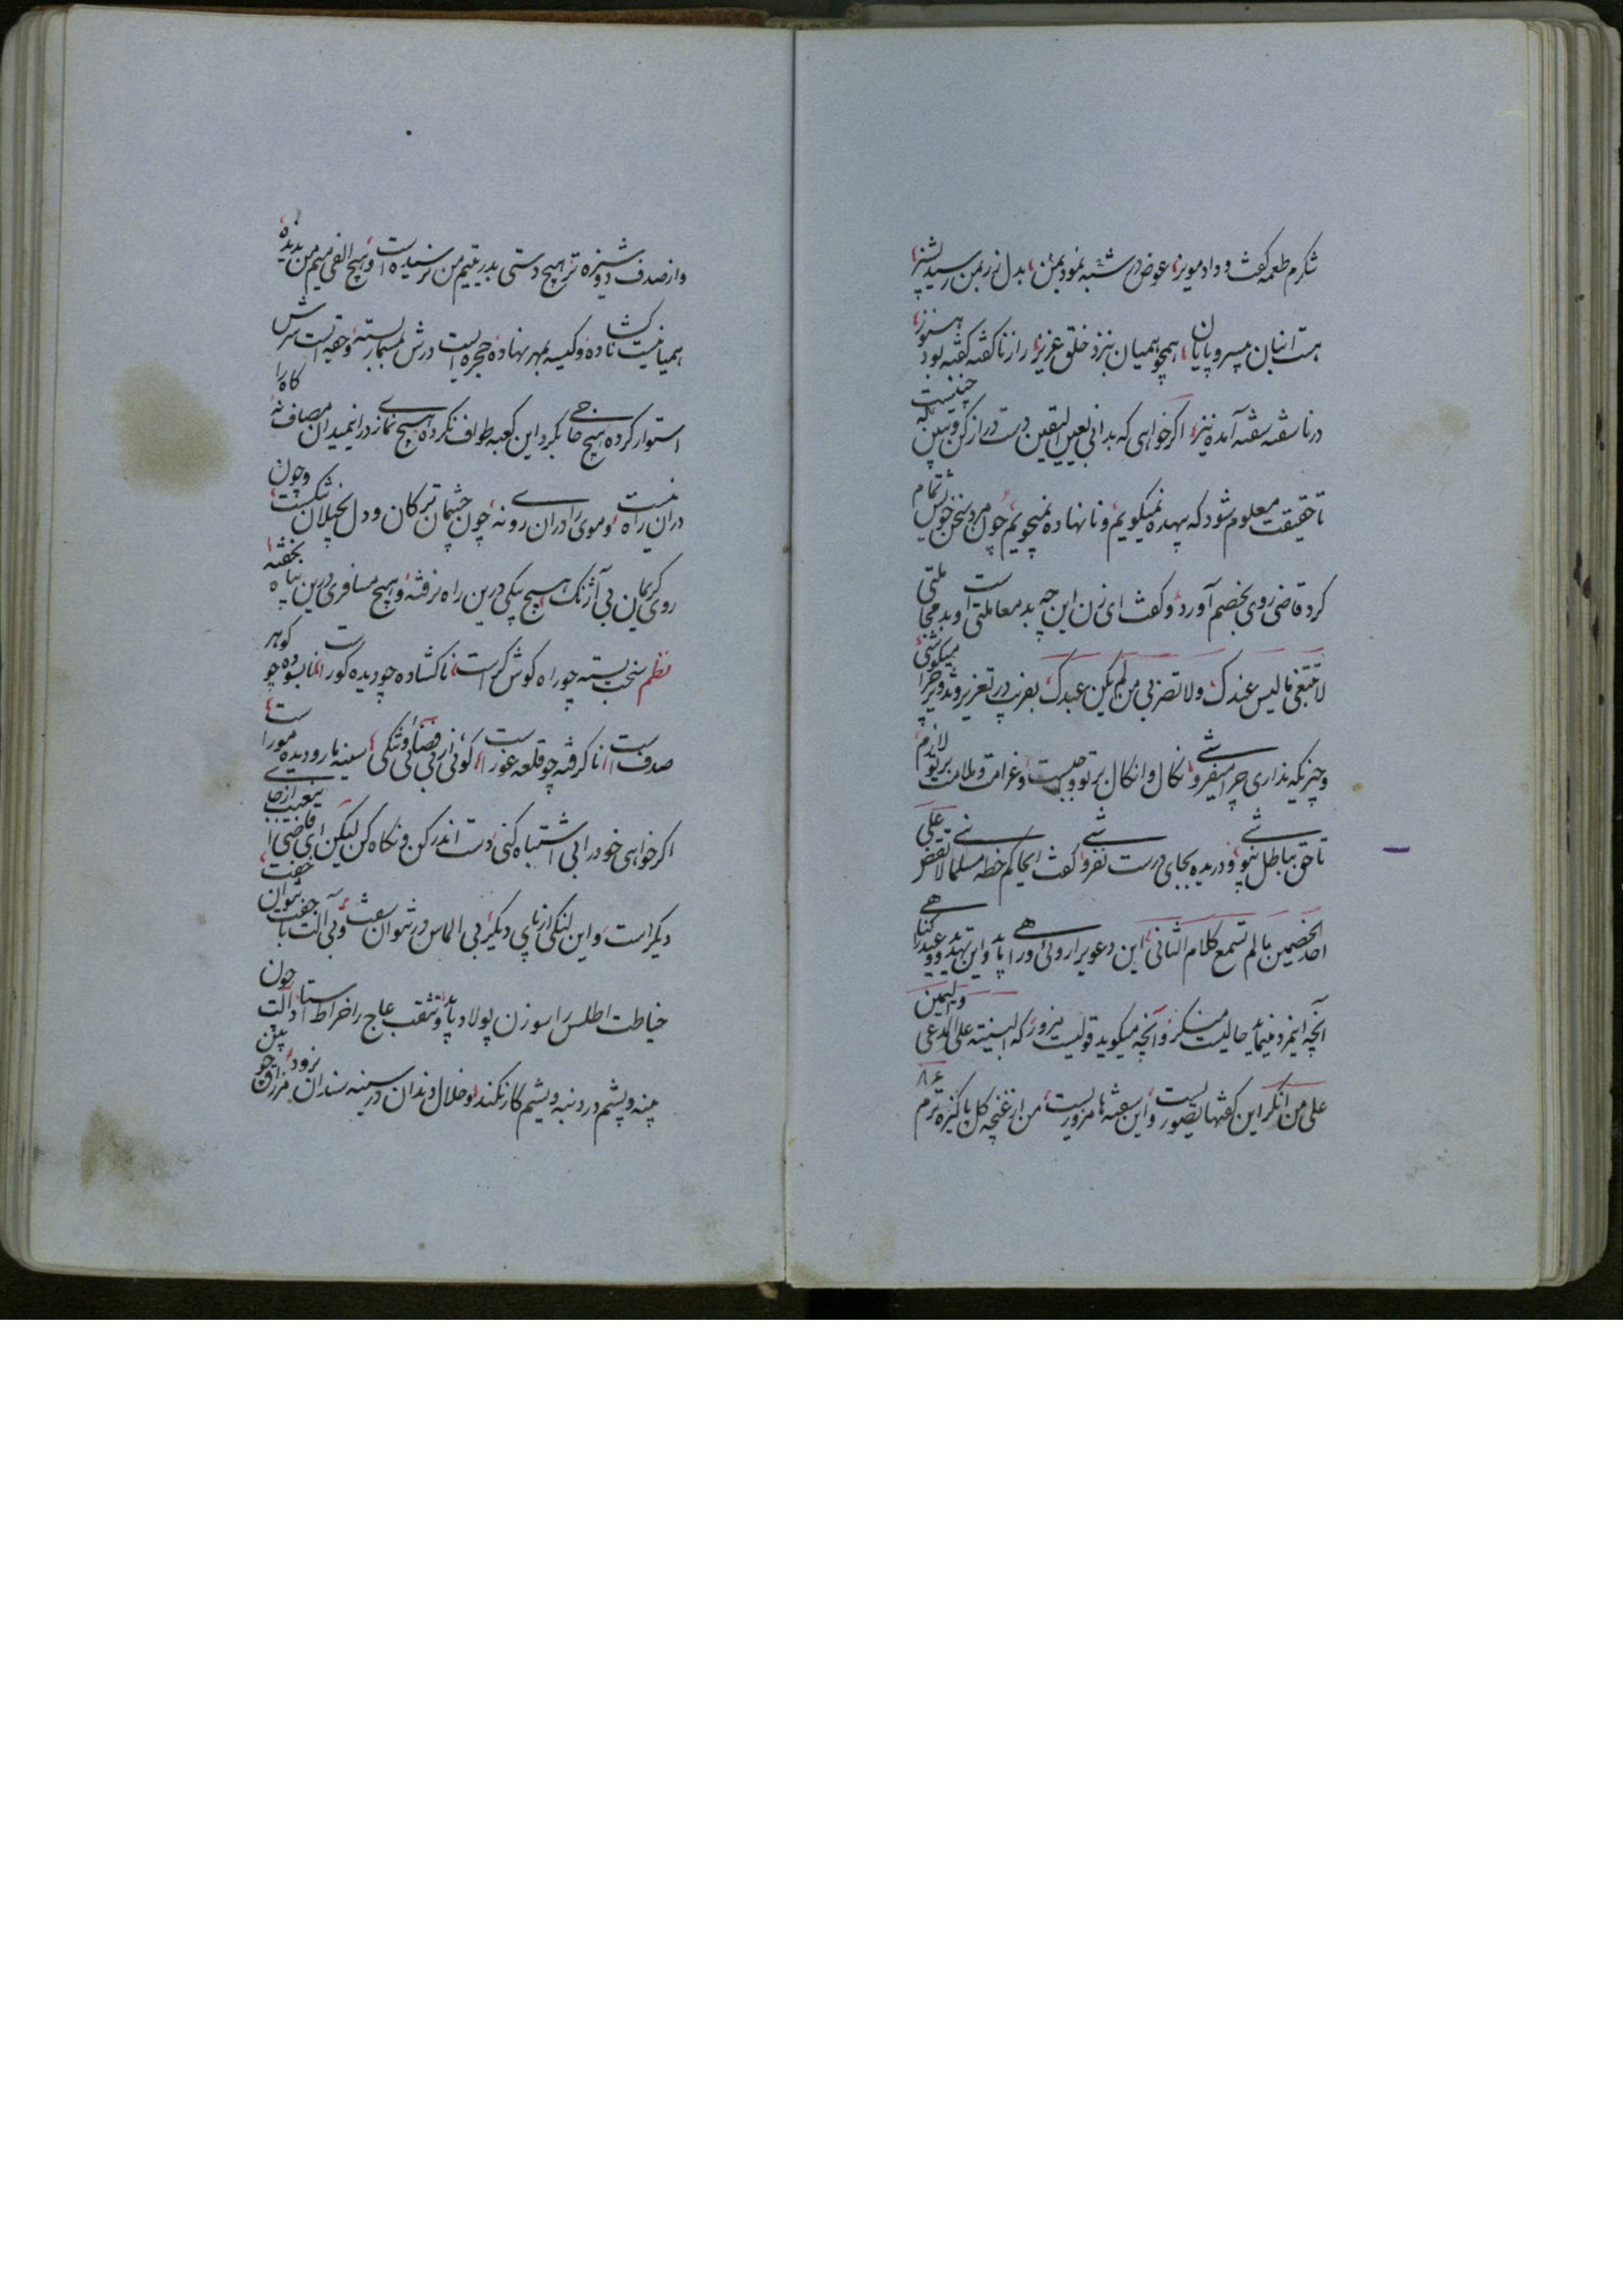 شکرم طعمه کفت و داد مویز، عوض در شبه نمود بمن، بدل زر بمن رسید پشیز،
هست انبان بیسر و پایان، همچو همیان بنزد خلق عزیز، راز ناکفته کفته بود هنوز،
در ناسفته سفته آمده نیز، اکر خواهی که بدانی بعین الیقین دست دراز کن و ببین که چنینست
تا حقیقت معلوم شود که بیهده نمیکویم و نانهاده نمیجویم، چون مرد سخن خویش تمام
کرد قاضی روی بخصم آورد و کفت ای زن این چه بد معاملتی است و بد مجاملتی
لا تبتغی ما لیس عندک ولا تضربی من لم یکن عبدک بضرب در تعزیر و تهدید چرا میکوشی
و چیزیکه نداری چرا میفروشی نکال و انکال بر تو واجبست و غرامت و ملامت بر تو لازم
تا حق بباطل نپوشی و دریده بجای درست نفروشی کفت ایحاکم خطه مسلمانی لا تقض علی
احد الخصمین ما لم تسمع کلام الثانی این دعوی را روئی و راهی باید و این تهدید و وعید را کناهی
آنچه اینمرد مینماید حالیست منکر و آنچه میکوید قولیست مزور که البینة علی المدعی والیمین
علی من انکر این کفتها بتصور یست، و این سفته ها مزوریست، من از غنچه کل پاکیزه ترم
۸۶
و از صدف دوشیزه تر هیچ دستی بدر یتیم من نرسیده است و هیچ الفی میم من ندیده
همیانیست ناکشاده و کیسه بمهر نهاده حجره ایست درش بمسمار بسته و حقه ایست سرش
استوار کرده هیچ حاجی کرد این کعبه طواف نکرده هیچ نمازی در انمیدان مصاف نه کاه را
دران راه نیست و موی را دران روی نه، چون چشمان ترکان و دل بخیلان تنکست و چون
روی کریمان بی آژنک هیچ پیکی درین راه نرفته و هیچ مسافری درین پناه نخفته
نظم سخت بسته چو راه کوش کر است، ناکشاده چو دیده کور است، نابسوده چو کوهر
صدف است، ناکرفته چو قلعه غور است، کوئی از بی فضائی و تنکی، سینه مار و دیده مور است
اکر خواهی خود را بی اشتباه کنی دست اندر کن و نکاه کن لیکن ای قاضی این عیب از جای
دیکر است و این لنکی از پای دیکر بی الماس در نتوان سفت و بی آلت با جفت نتوان خفت
خیاطت اطلس را سوزن پولاد باید و ثقب عاج را خراط استاد آلت چون
پنبه و پشم در دنبه و یشم کار نکند و خلال دندان در سینه سندان نرود، مزراق چو بین